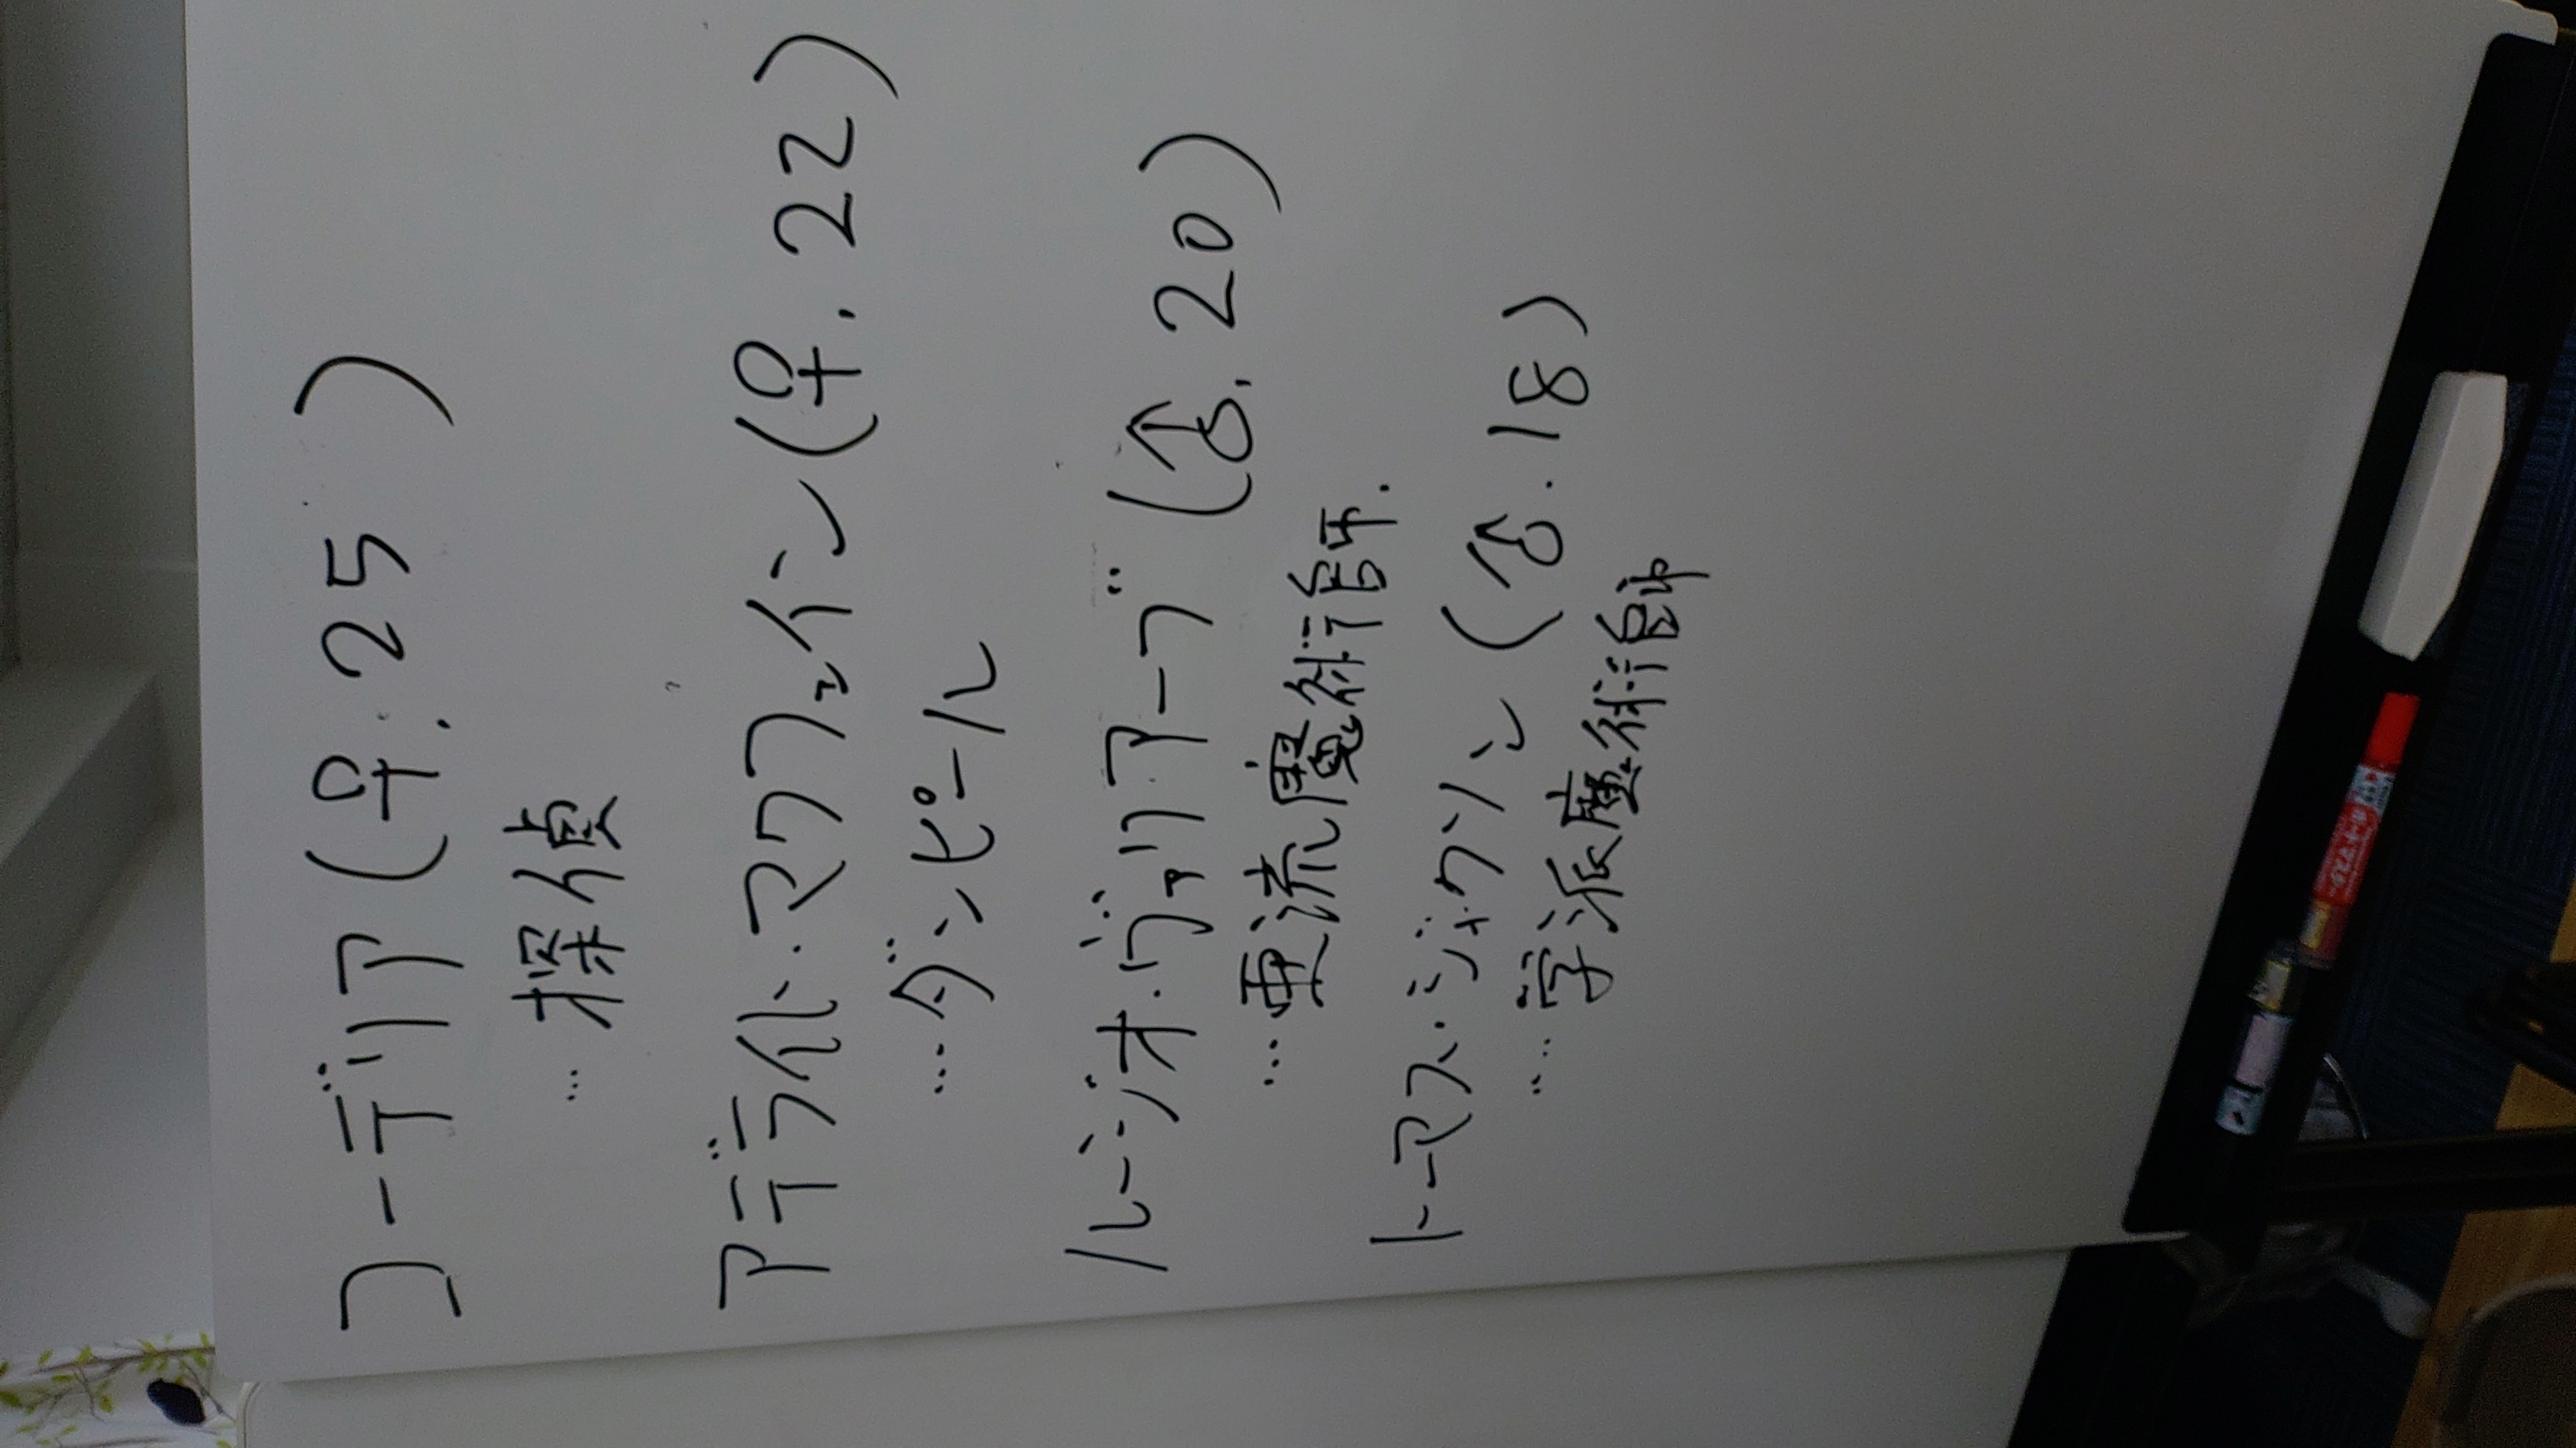 コーデリア(♀.25)
…探偵
アデライト・マクフェイン(♀.22)
…ダンピール
ルージオ・ヴァリアーブ(♂.20)
…亜流魔術師.
トーマス・ジャクソン(♂.18)
…学派魔術師